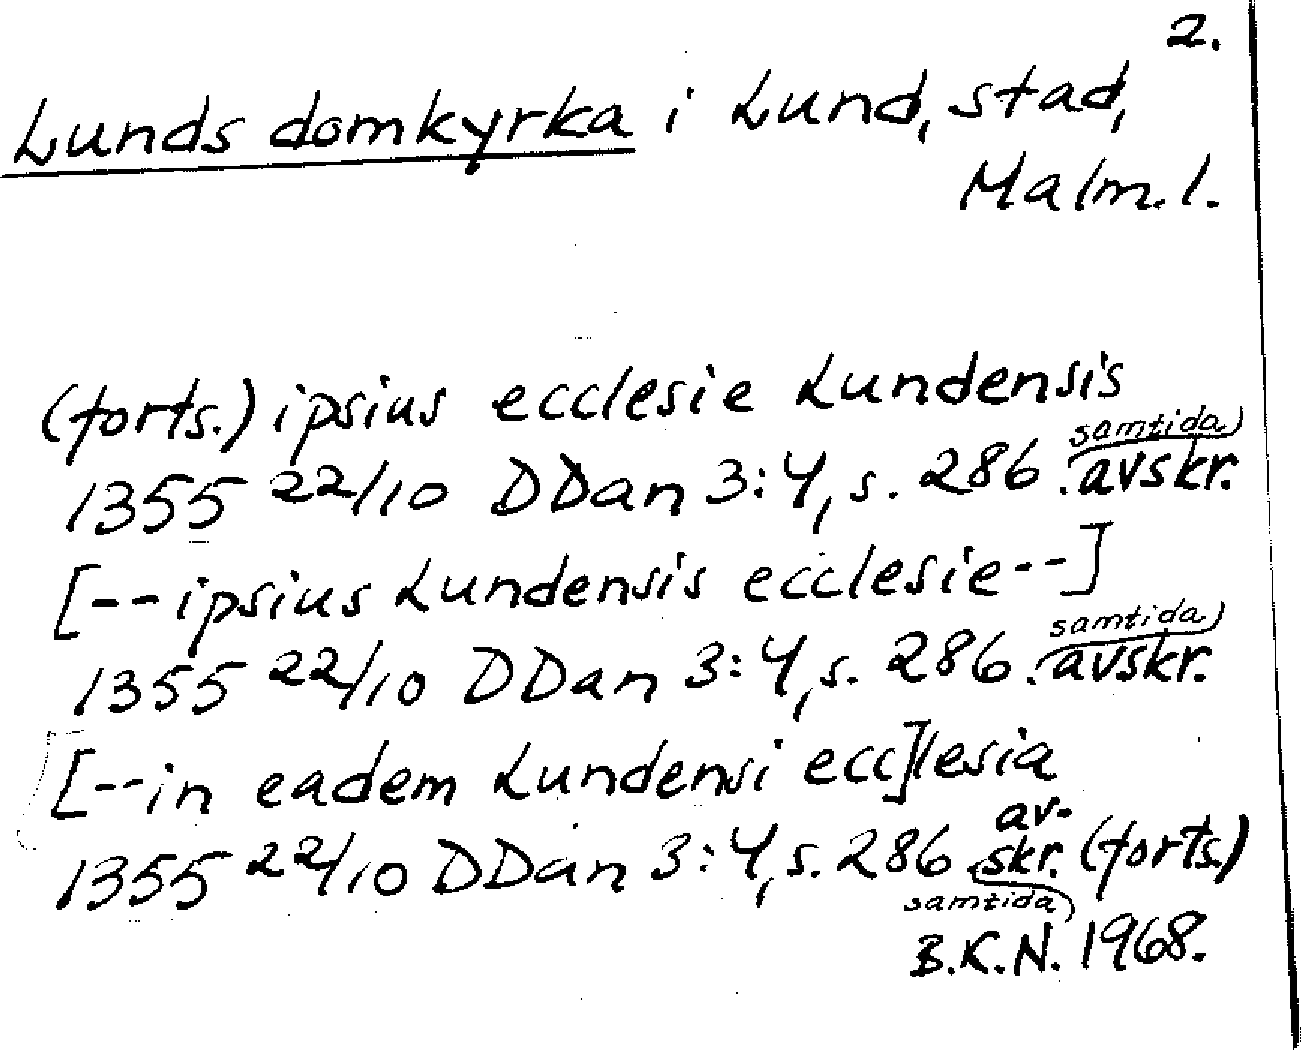 2.
Lunds domkyrka i Lund, stad,
Malm. l.
(forts.) ipsius ecclesie Lundensis
samtida
1355 22/10 DDan 3:4, s. 286. avskr.
[--ipsius Lundensis ecclesie--]
samtida
1355 22/10 DDan 3:4, s. 286. avskr.
[--in eadem Lundensi ecc]lesia
av-
1355 22/10 DDan 3:4, s. 286 skr. (forts.)
samtida
B.K.N. 1968.